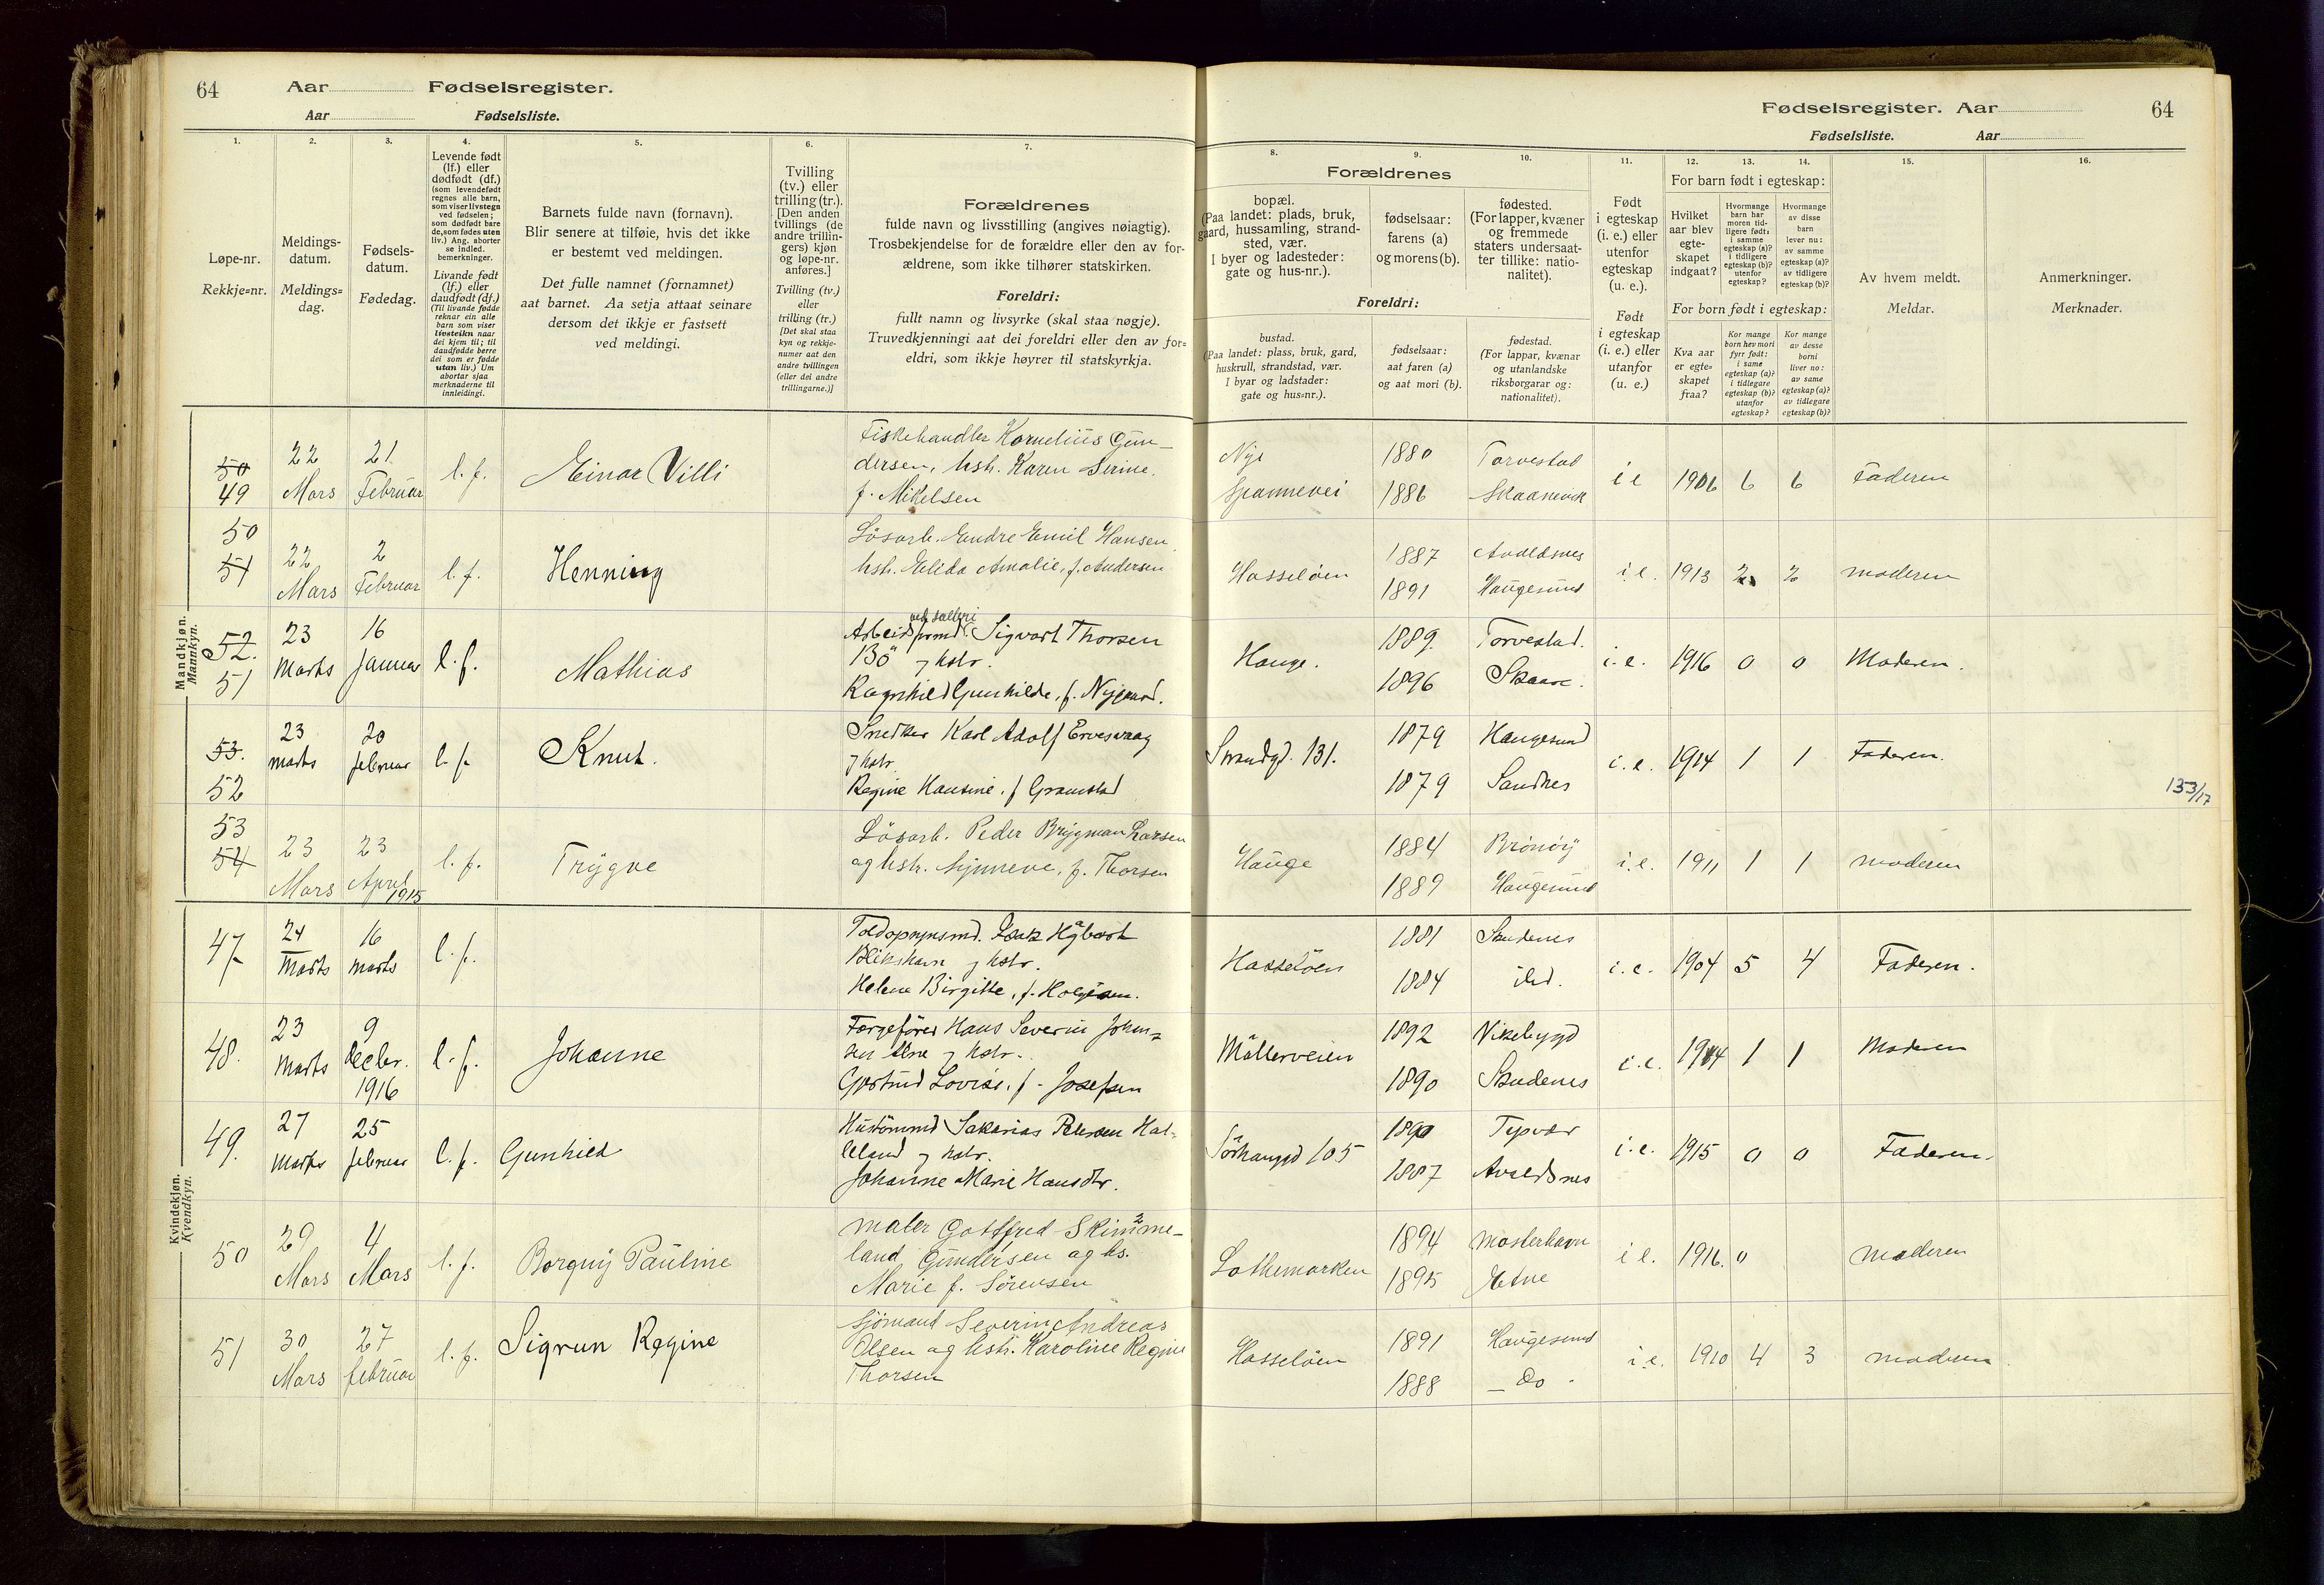 64 Aar Fødselsregister.
Aar Fødselsliste.
Fødselsregister. Aar 64
Fødselsliste. Aar
1. 2. 3. 4. 5. 6. 7. 8. 9. 10. 11. 12. 13. 14. 15. 16.
Løpe-nr.
Rekkje=nr.
Meldings-
datum.
Meldings=
dag.
Fødsels-
datum.
Fødedag.
Levende født
(lf.) eller
dødfødt (df.)
(som levendefødt
regnes alle barn,
som viser livstegn
ved fødselen;
som dødfødt bare
de, som fødes uten
liv.) Ang. aborter
se indled.
bemerkninger.
Livande født
(lf.) eller
daudfødt (df.)
(Til livande fødde
reknar ein alle
barn som viser
livsteikn naar
dei kjem til; til
daudfødde berre
dei som er fødde
utan liv.) Um
abortar sjaa
merknaderne til
innleidingi.
Barnets fulde navn (fornavn).
Blir senere at tilføie, hvis det ikke
er bestemt ved meldingen.
Det fulle namnet (fornamnet)
aat barnet. Aa setja attaat seinare
dersom det ikkje er fastsett
ved meldingi.
Tvilling
(tv.) eller
trilling (tr.).
[Den anden
tvillings (de
andre trillin-
gers) kjøn
og løpe-nr.
anføres.]
Tvilling (tv.)
eller
trilling (tr.)
[Det skal staa
kyn og rekkje-
numer aat den
andre tvillingen
(eller dei andre
trillingarne.)]
Forældrenes
fulde navn og livsstilling (angives nøiagtig).
Trosbekjendelse for de forældre eller den av for-
ældrene, som ikke tilhører statskirken.
Foreldri:
fullt namn og livsyrke (skal staa nøgje).
Truvedkjenningi aat dei foreldri eller den av for=
eldri, som ikkje høyrer til statskyrkja.
Forældrenes
bopæl.
(Paa landet: plads, bruk,
gaard, hussamling, strand-
sted, vær.
I byer og ladesteder:
gate og hus-nr.).
fødselsaar:
farens (a)
og morens (b).
fødested.
(For lapper, kvæner
og fremmede
staters undersaat-
ter tillike: natio-
nalitet).
Foreldri:
bustad.
(Paa landet: plass, bruk, gard,
huskrull, strandstad, vær.
I byar og ladstader:
gate og hus=nr.).
fødselsaar:
aat faren (a)
og aat mori (b).
fødestad.
(For lappar, kvænar
og utanlandske
riksborgarar og:
nationalitet).
Født
i egteskap
(i. e.) eller
utenfor
egteskap
(u. e.).
Født
i egteskap
(i. e.) eller
utanfor
(u. e.)
For barn født i egteskap:
Hvilket
aar blev
egte-
skapet
indgaat?
Hvormange
barn har
moren tid-
ligere født:
i samme
egteskap (a)?
i tidligere
egteskap (b)?
utenfor
egteskap?
Hvormange
av disse
barn
lever nu:
av samme
egteskap (a)?
av tidligere
egteskap (b)?
For born født i egteskap:
Kva aar
er egte=
skapet
fraa?
Kor mange
born hev mori
fyrr født:
i same
egteskap (a)?
i tidlegare
egteskap (b)?
utanfor
egteskap?
Kor mange
av desse
borni
liver no:
av same
egteskap (a)?
av tidlegare
egteskap (b)?
Av hvem meldt.
Meldar.
Anmerkninger.
Merknader.
Mandkjøn.
Mannkyn.
50 49 22 Mars 21. Februar l. f. Einar Villi
Fiskehandler Kornelius Gun-
dersen, hstr. Karen Serine,
f. Mikelsen
Nye Spannevei 1880 1886 Torvestad Skaanevik i e 1906 6 6 Faderen
50 51 22 Mars 2 Februar l. f. Henning
Løsarb. Endre Emil Hansen,
hstr. Elida Amalie, f. Andersen
Hasseløen 1887 1891 Avaldsnes Haugesund i. e. 1913 2 2 moderen
52. 51 23 Marts 16 Januar l. f. Mathias
Sigvart Thorsen
Bö og hstr.
Ragnhild Gunhilde, f. Nygaard.
Hauge. 1889. 1896 Torvestad. Skaare. i. e. 1916 0 0 Moderen.
53. 52 23 marts 20 februar l. f. Knut.
Snedker Karl Adolf Ervesvaag
og hstr.
Regine Hansine, f Gramstad
Strandgd. 131. 1879 1879 Haugesund Sandnes i. e. 1914 1 1 Faderen.
153/17
53 54 23 Mars 23 April 1915 l. f. Trygve
Løsarb. Peder Brygman Larsen
og hstr. Synneve, f. Thorsen
Hauge 1884 1889 Brönöy Haugesund i. e. 1911 1 1 moderen
Kvindekjøn.
Kvendkyn.
47 24 Marts 16 marts l. f.
Blikshavn og hstr.
Helene Birgitte, f. Holgersen.
Hasselöen 1881 1884 Skudenes ibd. i. e. 1904 5 4 Faderen.
48. 23 Marts 9 Decbr. 1916 l. f. Johanne
Færgeförer Hans Severin Johan=
sen Alne og hstr.
Gjertrud Lovise, f. Josefsen
Møllerveien 1892 1890 Vikebygd Skudenes i. e. 1914 1 1 Moderen
49. 27 Marts 25 februar l. f. Gunhild
Sakarias Petersen Hat-
teland og hstr.
Johanne Marie Hansdtr.
Sörhauggd 105 1890 1887 Tysvær Avaldsnes i. e. 1915 0 0 Faderen.
50 29 Mars 4 Mars l. f. Borguy Pauline
maler Gottfred Skimme-
land Gundersen og hs.
Marie f. Sörensen
Lothemarken 1894 1895 Mosterhavn Etne i e. 1916. 0 moderen
51 30 Mars 27 februar l. f. Sigrun Regine
Sjömand Severin Andreas
Olsen og hstr. Karoline Regine
Thorsen
Hasseløen 1891 1888 Haugesund Do i. e. 1910 4 3 moderen